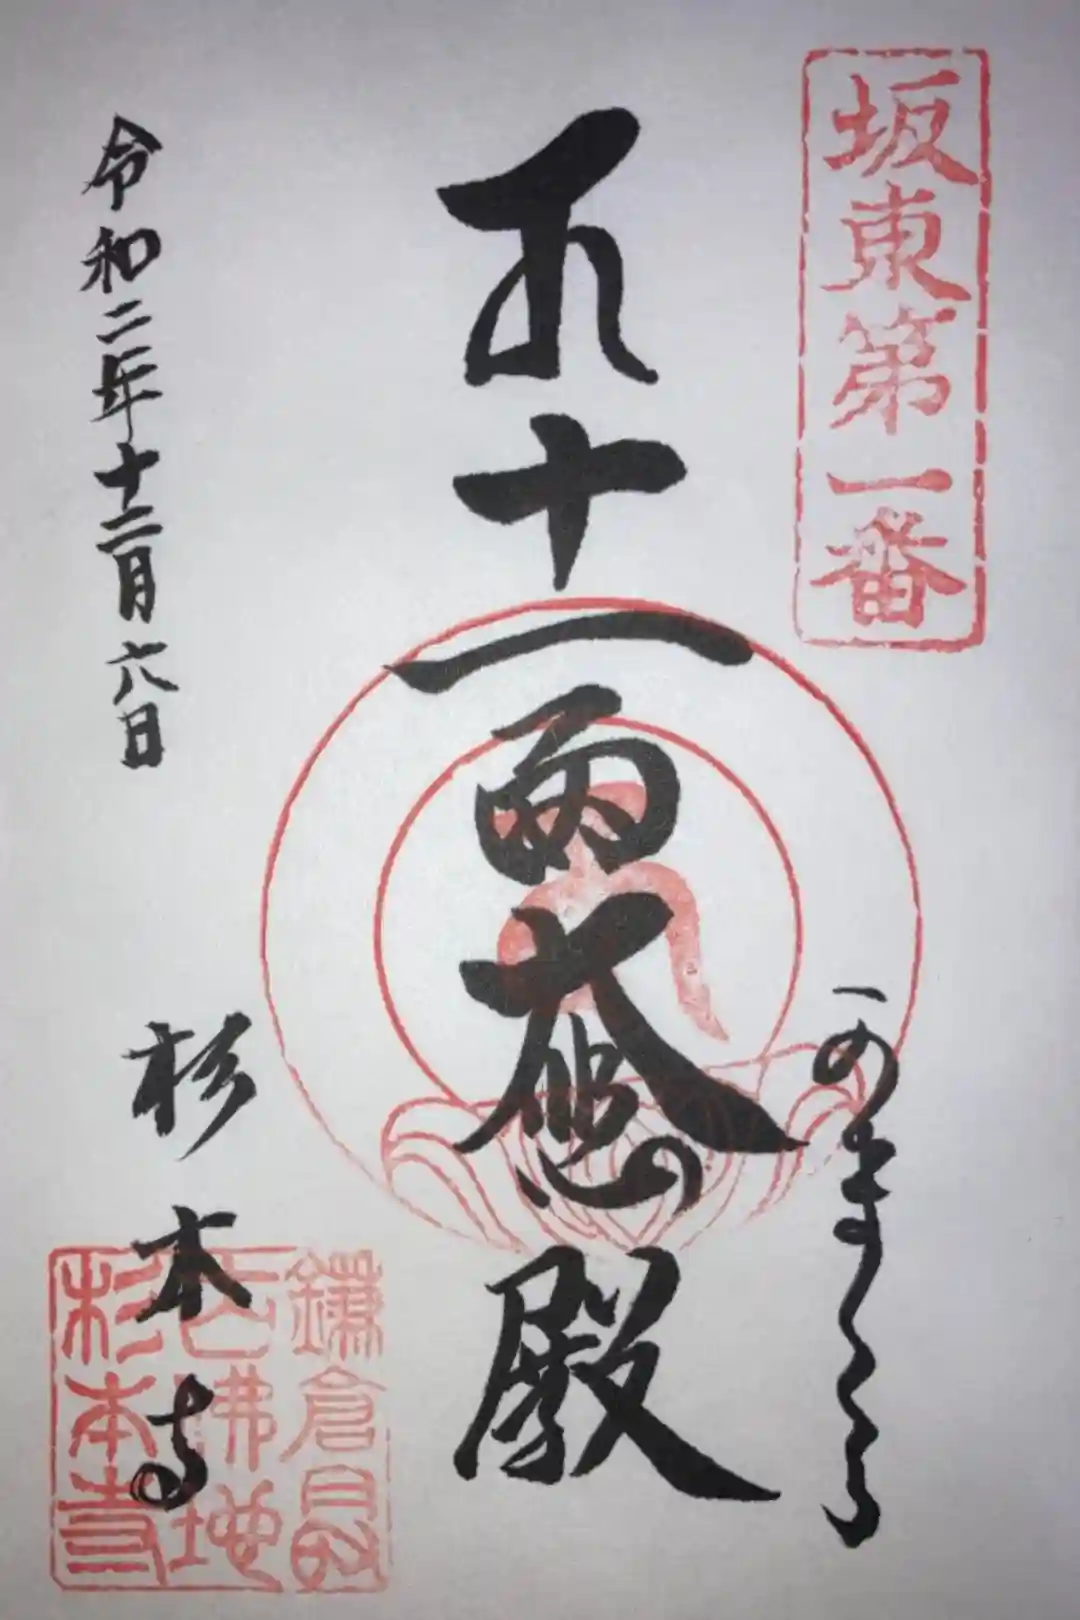 坂東第一番
十一面大悲殿
令和二年十二月六日
杉本寺
鎌倉最
古佛地
杉本寺